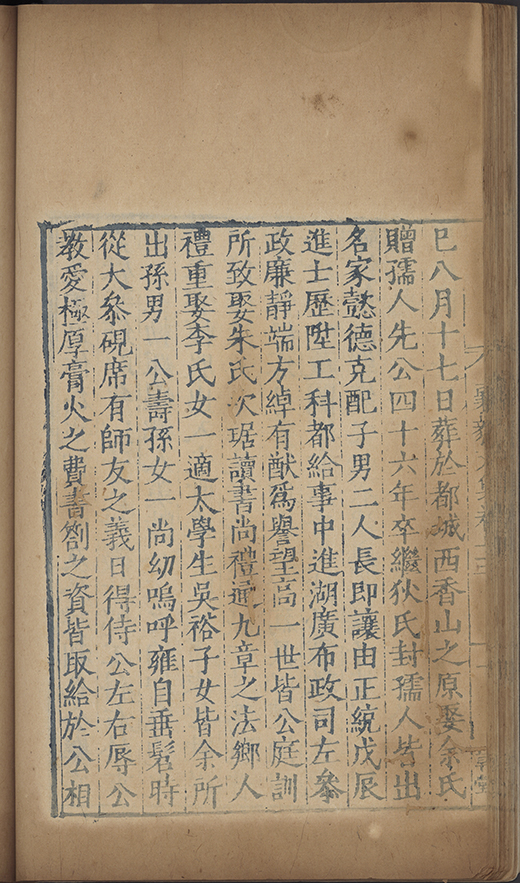 巳八月十七日葬於都城西香山之原娶余氏
贈孺人先公四十六年卒繼狄氏封孺人皆出
名家懿德克配子男二人長即讓由正統戊辰
進士歷陞工科都給事中進湖廣布政司左叅
政廉靜端方綽有猷爲譽望高一世皆公庭訓
所致娶朱氏次琚讀書尚禮通九章之法鄉人
禮重娶李氏女一適太學生吳裕子女皆余所
出孫男一公壽孫女一尚幼嗚呼雍自垂髫時
從大叅硯席有師友之義日得侍公左右辱公
敎愛極厚膏火之費書劄之資皆取給於公相